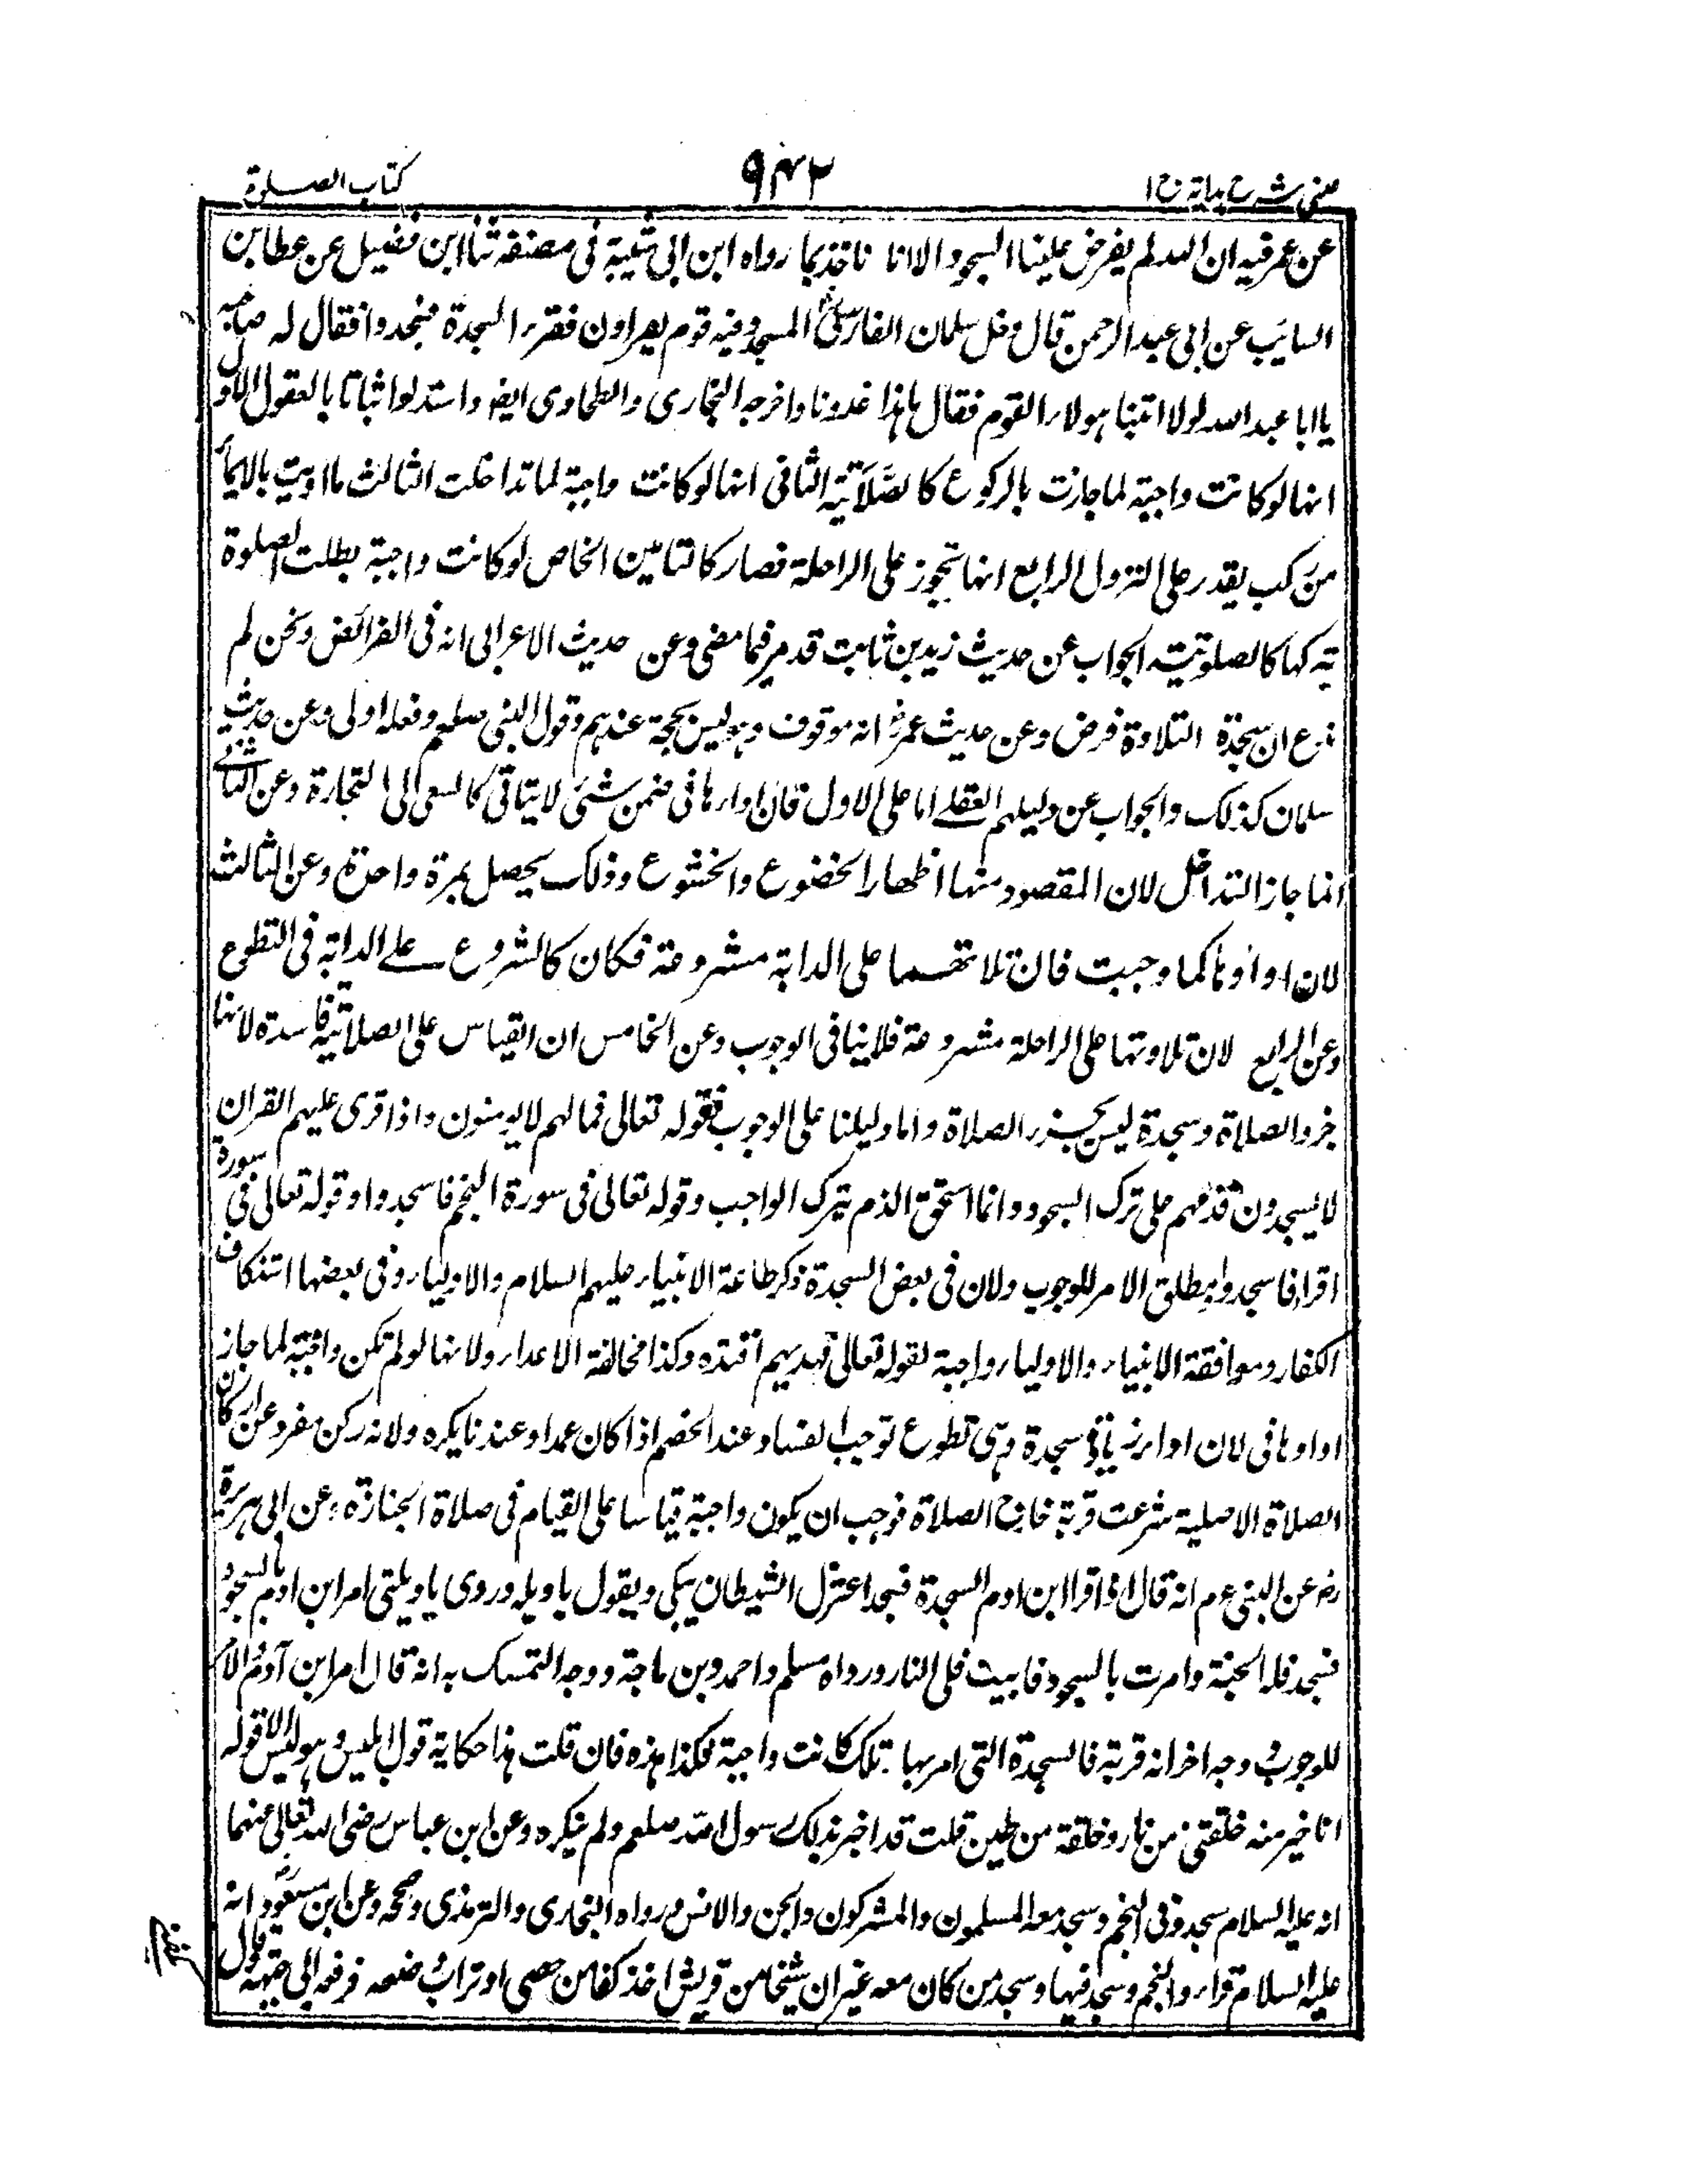 عینی شرح ہدایہ ج۱ ۹۴۲ کتاب الصلوۃ
عن عمر فیہ ان اللہ لم یفرض علینا السجود الا انا ناخذ بما رواہ ابن ابی شیبۃ فی مصنفہ ثنا ابن فضیل عن عطا بن
السائب عن ابی عبد الرحمن قال دخل سلمان الفارسی رض المسجد وفیہ قوم یقراون فقرء السجدۃ فسجدوا فقال لہ صاحبہ
یا ابا عبد اللہ لولا اتینا ہولاء القوم فقال ما لہذا غدونا واخرجہ البخاری والطحاوی ایض واستدلوا ثباتا بالعقول الاول
انہا لو کانت واجبۃ لما جازت بالرکوع کالصلاتیۃ الثانی انہا لو کانت واجبۃ لما تداخلت الثالث ما ادیت بالایماء
من رکب یقدر علی النزول الرابع انہا تجوز علی الراحلۃ فصار کالتامین الخاص لو کانت واجبۃ بطلت الصلوۃ
بترکہا کالصلوتیۃ الجواب عن حدیث زید بن ثابت قد مر فیما مضی وعن حدیث الاعرابی انہ فی الفرائض ونحن لم
نزع ان سجدۃ التلاوۃ فرض وعن حدیث عمر رض انہ موقوف وہو لیس بحجۃ عندہم وقول النبی صلعم وفعلہ اولی وعن حدیث
سلمان کذلک والجواب عن دلیلہم العقلے اما علی الاول فان اداءہا فی ضمن شئی لا یتاتی کالسعی الی التجارۃ وعن الثانی
انما جاز التداخل لان المقصود منہا اظہار الخضوع والخشوع وذلک یحصل بمرۃ واحدۃ وعن الثالث
لان اداؤہا کما وجبت فان تلاتہما علی الدابۃ مشروعۃ فکان کالشروع علے الدابۃ فی التطوع
وعن الرابع لان تلاوتہا علی الراحلۃ مشروعۃ فلا ینافی الوجوب وعن الخامس ان القیاس علی الصلاتیۃ فاسدۃ لانہا
جزء الصلاۃ وسجدۃ لیس بجزء الصلاۃ واما دلیلنا علی الوجوب فقولہ تعالی فما لہم لا یومنون واذا قری علیہم القران
لا یسجدون فذمہم علی ترک السجود وانما استحق الذم بترک الواجب وقولہ تعالی فی سورۃ النجم فاسجدوا وقولہ تعالی فی سورۃ
اقرا فاسجدوا ومطلق الامر للوجوب ولان فی بعض السجدۃ ذکر طاعۃ الانبیاء علیہم السلام والاولیاء وفی بعضہا استنکاف
الکفار وموافقۃ الانبیاء والاولیاء واجبۃ لقولہ تعالی فبہدیہم اقتدہ وکذا مخالفۃ الاعداء ولانہا لو لم تکن واجبۃ لما جاز
اداوہا فی لان اداء زیادۃ سجدۃ وہی تطوع توجب الفساد عند الخصم اذا کان عمدا وعندنا یکرہ ولانہ رکن مفرد عن ارکان
الصلاۃ الاصلیۃ شرعت قربۃ خارج الصلاۃ فوجب ان یکون واجبۃ قیاسا علی القیام فی صلاۃ الجنازۃ وعن ابی ہریرۃ
رض عن النبی عم انہ قال اذا قرا ابن ادم السجدۃ فسجد اعتزل الشیطان یبکی ویقول یا ویلہ وروی یا ویلتی امر ابن ادم بالسجود
فسجد فلہ الجنۃ وامرت بالسجود فابیت فلی النار ورواہ مسلم واحمد وبن ماجۃ ووجہ التمسک بہ انہ قال امر ابن آدم والامر
للوجوب ووجہ اخر انہ قربۃ فالسجدۃ التی امر بہا تلک کانت واجبۃ فکذا ہذہ فان قلت ہذا حکایۃ قول ابلیس وہو لیس الا قولہ
انا خیر منہ خلقتنی من نار وخلقۃ من طین قلت قد اخبر بذلک رسول اللہ صلعم ولم ینکرہ وعن ابن عباس رضی اللہ تعالی عنہما
انہ علیہ السلام سجد وفی النجم وسجد معہ المسلمون والمشرکون والجن والانس ورواہ البخاری والترمذی وصححہ وعن ابن مسعود رض انہ
علیہ السلام قراء والنجم وسجد فیہا وسجد من کان معہ غیر ان شیخا من قریش اخذ کفا من حصی او تراب فرفعہ الی جبہتہ وقال